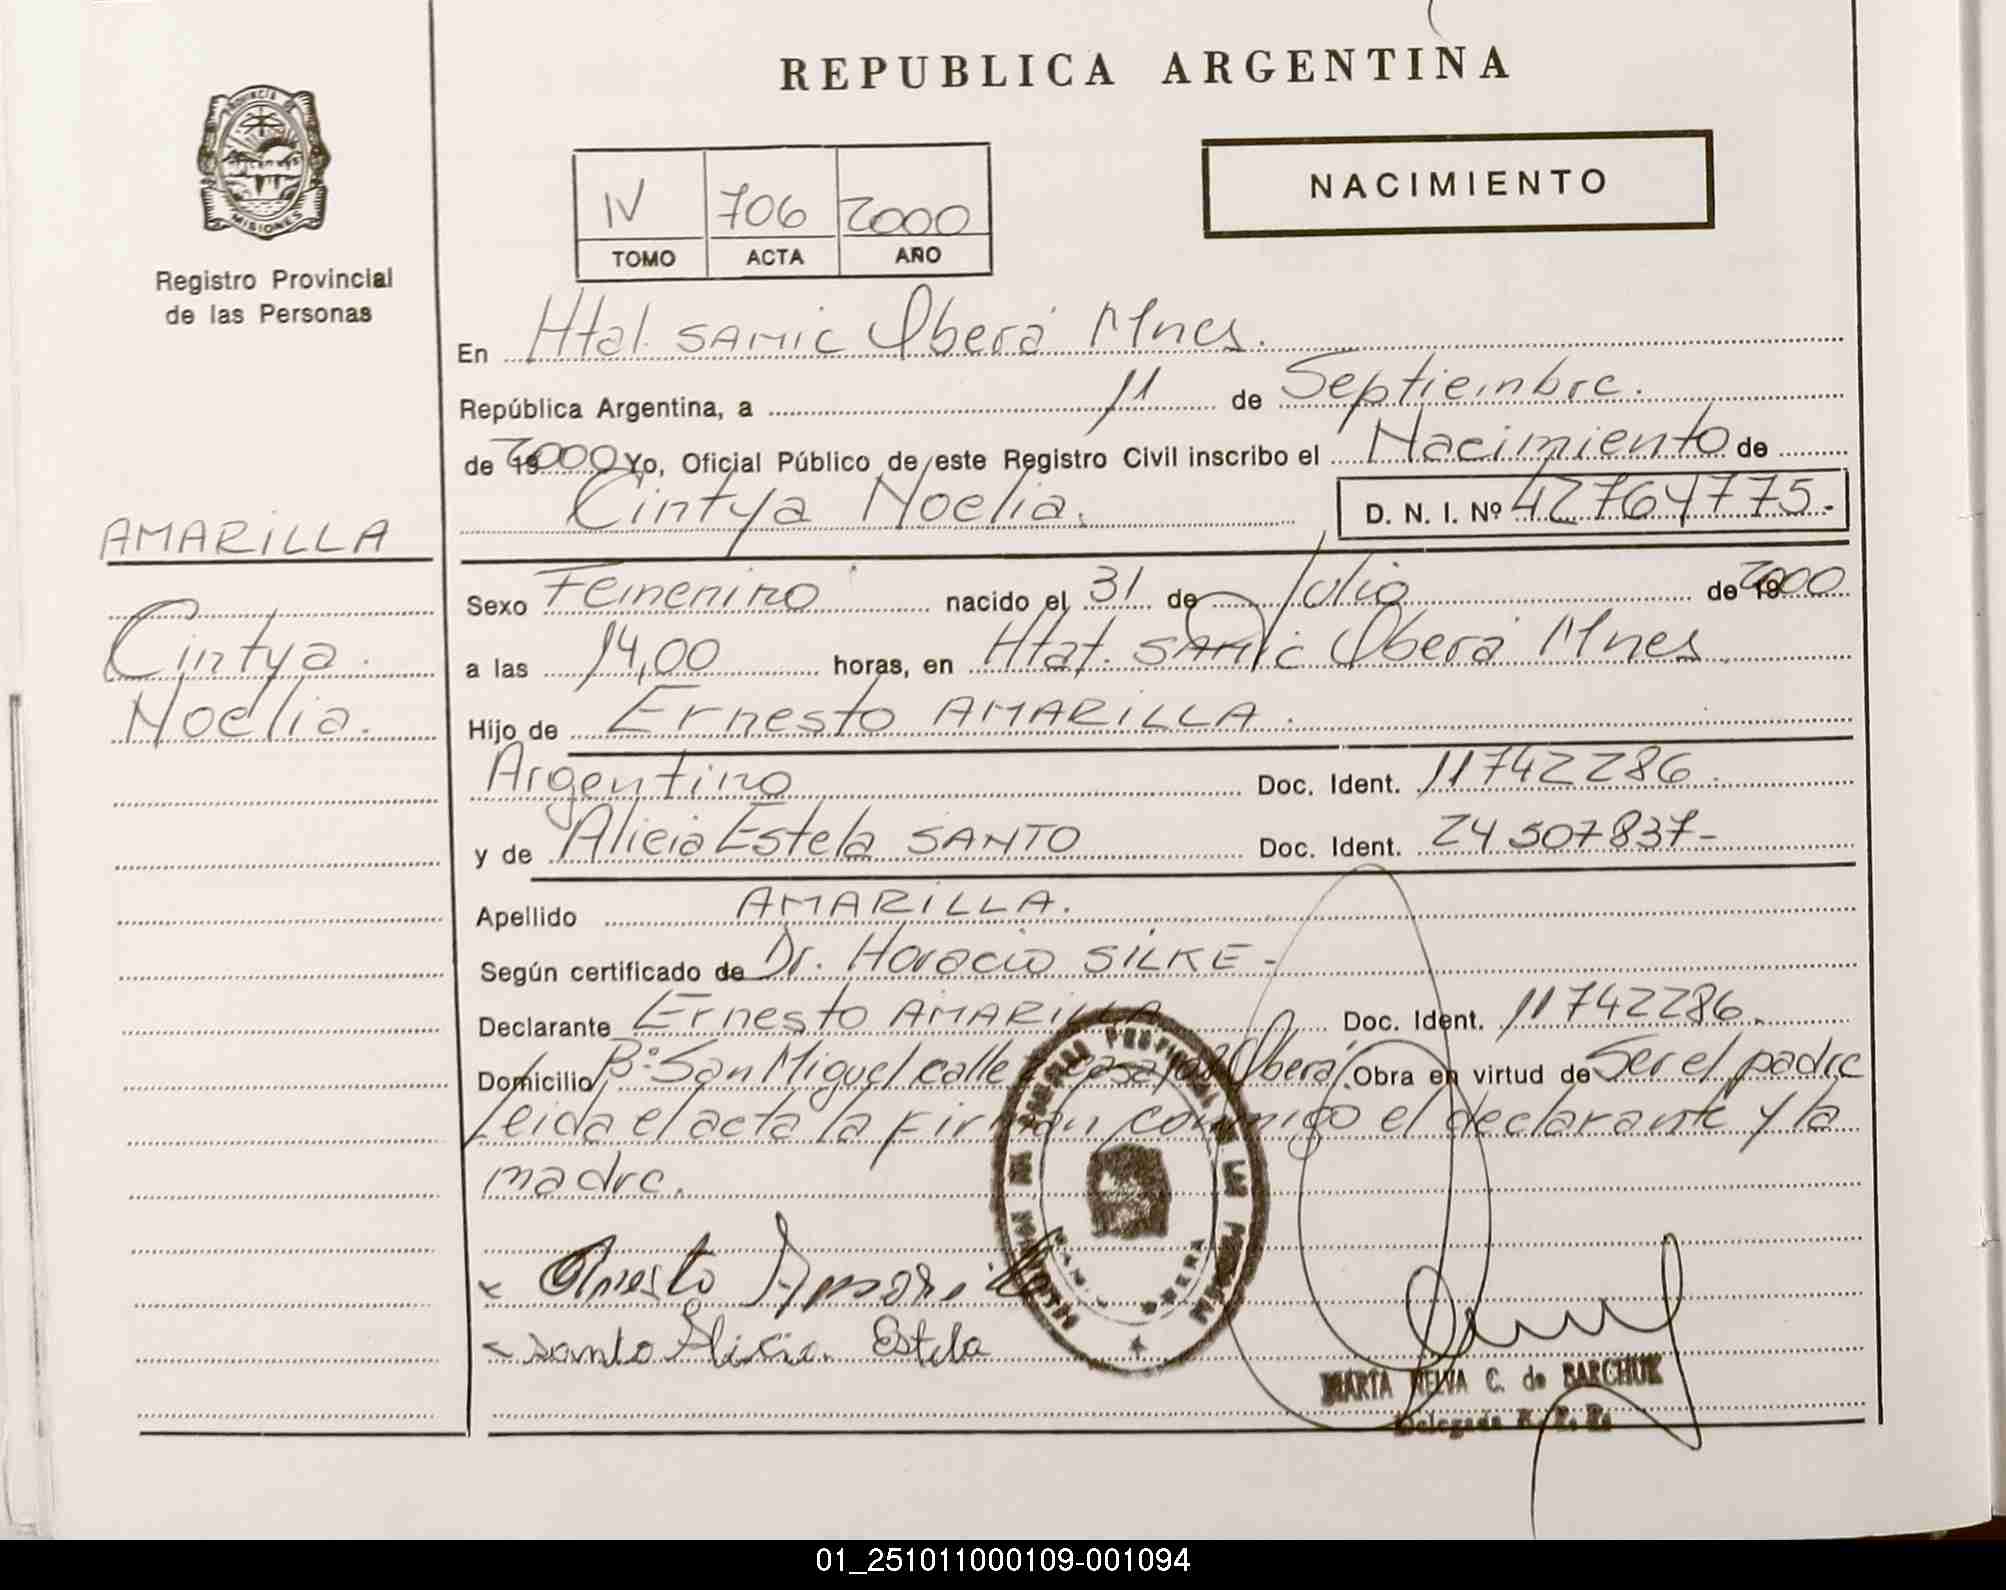 REPUBLICA ARGENTINA
PROVINCIA DE
MISIONES
Registro Provincial
de las Personas
IV 706 2000
TOMO ACTA AÑO
NACIMIENTO
En Htal. SAMIC Oberá Mnes.
República Argentina, a 11 de Septiembre.
de 2000 Yo, Oficial Público de este Registro Civil inscribo el Nacimiento de
Cintya Noelia. D. N. I. Nº 42764775.-
AMARILLA
Cintya
Noelia.
Sexo Femenino nacido el 31 de Julio de 2000
a las 14,00 horas, en Htal. SAMIC Oberá Mnes
Hijo de Ernesto AMARILLA.
Argentino Doc. Ident. 11742286.
y de Alicia Estela SANTO Doc. Ident. 24507837-
Apellido AMARILLA.
Según certificado de Dr. Horacio SILKE-
Declarante Ernesto AMARILLA Doc. Ident. 11742286.
Domicilio B: San Miguel calle Oberá. Obra en virtud de Ser el padre
Leida el acta la firman conmigo el declarante y la
madre.
Ernesto Amarilla
Santo Alicia Estela
MARTA NELVA C. de BARCHUK
Delegada R. P. P.
01_251011000109-001094